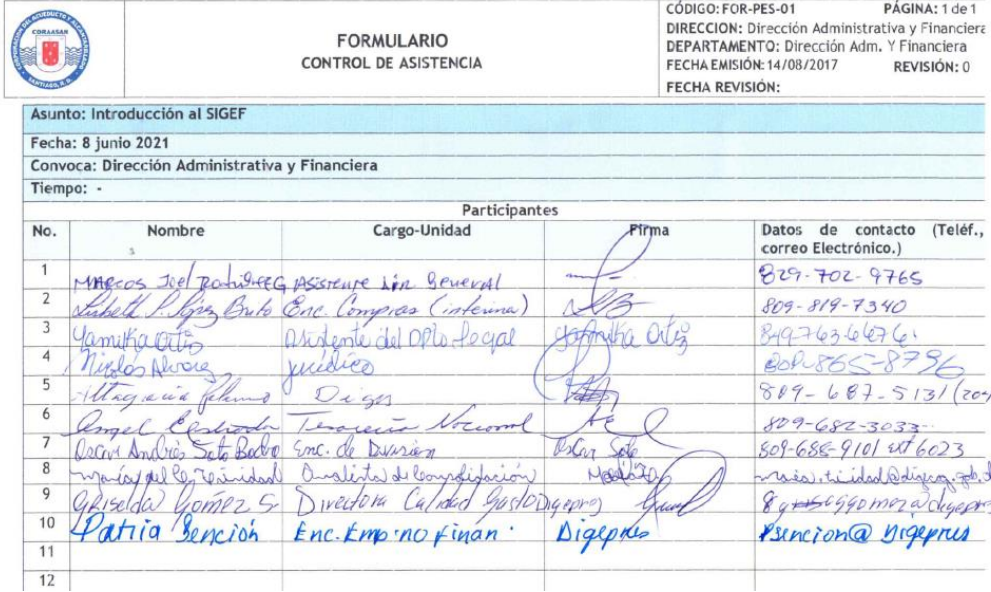 CORPORACION DEL ACUEDUCTO Y ALCANTARILLADO
CORAASAN
SANTIAGO, R.D.
FORMULARIO
CONTROL DE ASISTENCIA
CÓDIGO: FOR-PES-01 PÁGINA: 1 de 1
DIRECCION: Dirección Administrativa y Financiera
DEPARTAMENTO: Dirección Adm. Y Financiera
FECHA EMISIÓN: 14/08/2017 REVISIÓN: 0
FECHA REVISIÓN:
Asunto: Introducción al SIGEF
Fecha: 8 junio 2021
Convoca: Dirección Administrativa y Financiera
Tiempo: -
Participantes
No. Nombre Cargo-Unidad Firma Datos de contacto (Teléf.,
correo Electrónico.)
1 Marcos Joel Asistente General 829-702-9765
2 Lisbeth P. López Brito Enc. Compras (interina) 809-819-7340
3 Yamilka Ortiz Asistente del Dpto. Legal Yamilka Ortiz
4 Nicolas Alvarez jurídico 865-8796
5 Altagracia Diges 809-687-5131
6 Angel Tesorería Nacional 809-682-3033
7 Oscar Andrés Soto Enc. de División Oscar Soto 809-688-9101 ext 6023
8 María del C. Trinidad Analista de Consolidación
9 Griselda Gómez S. Directora Calidad Gasto Digepres
10 Patria Sención Enc. Emp. no Finan. Digepres Psencion@Digepres
11
12